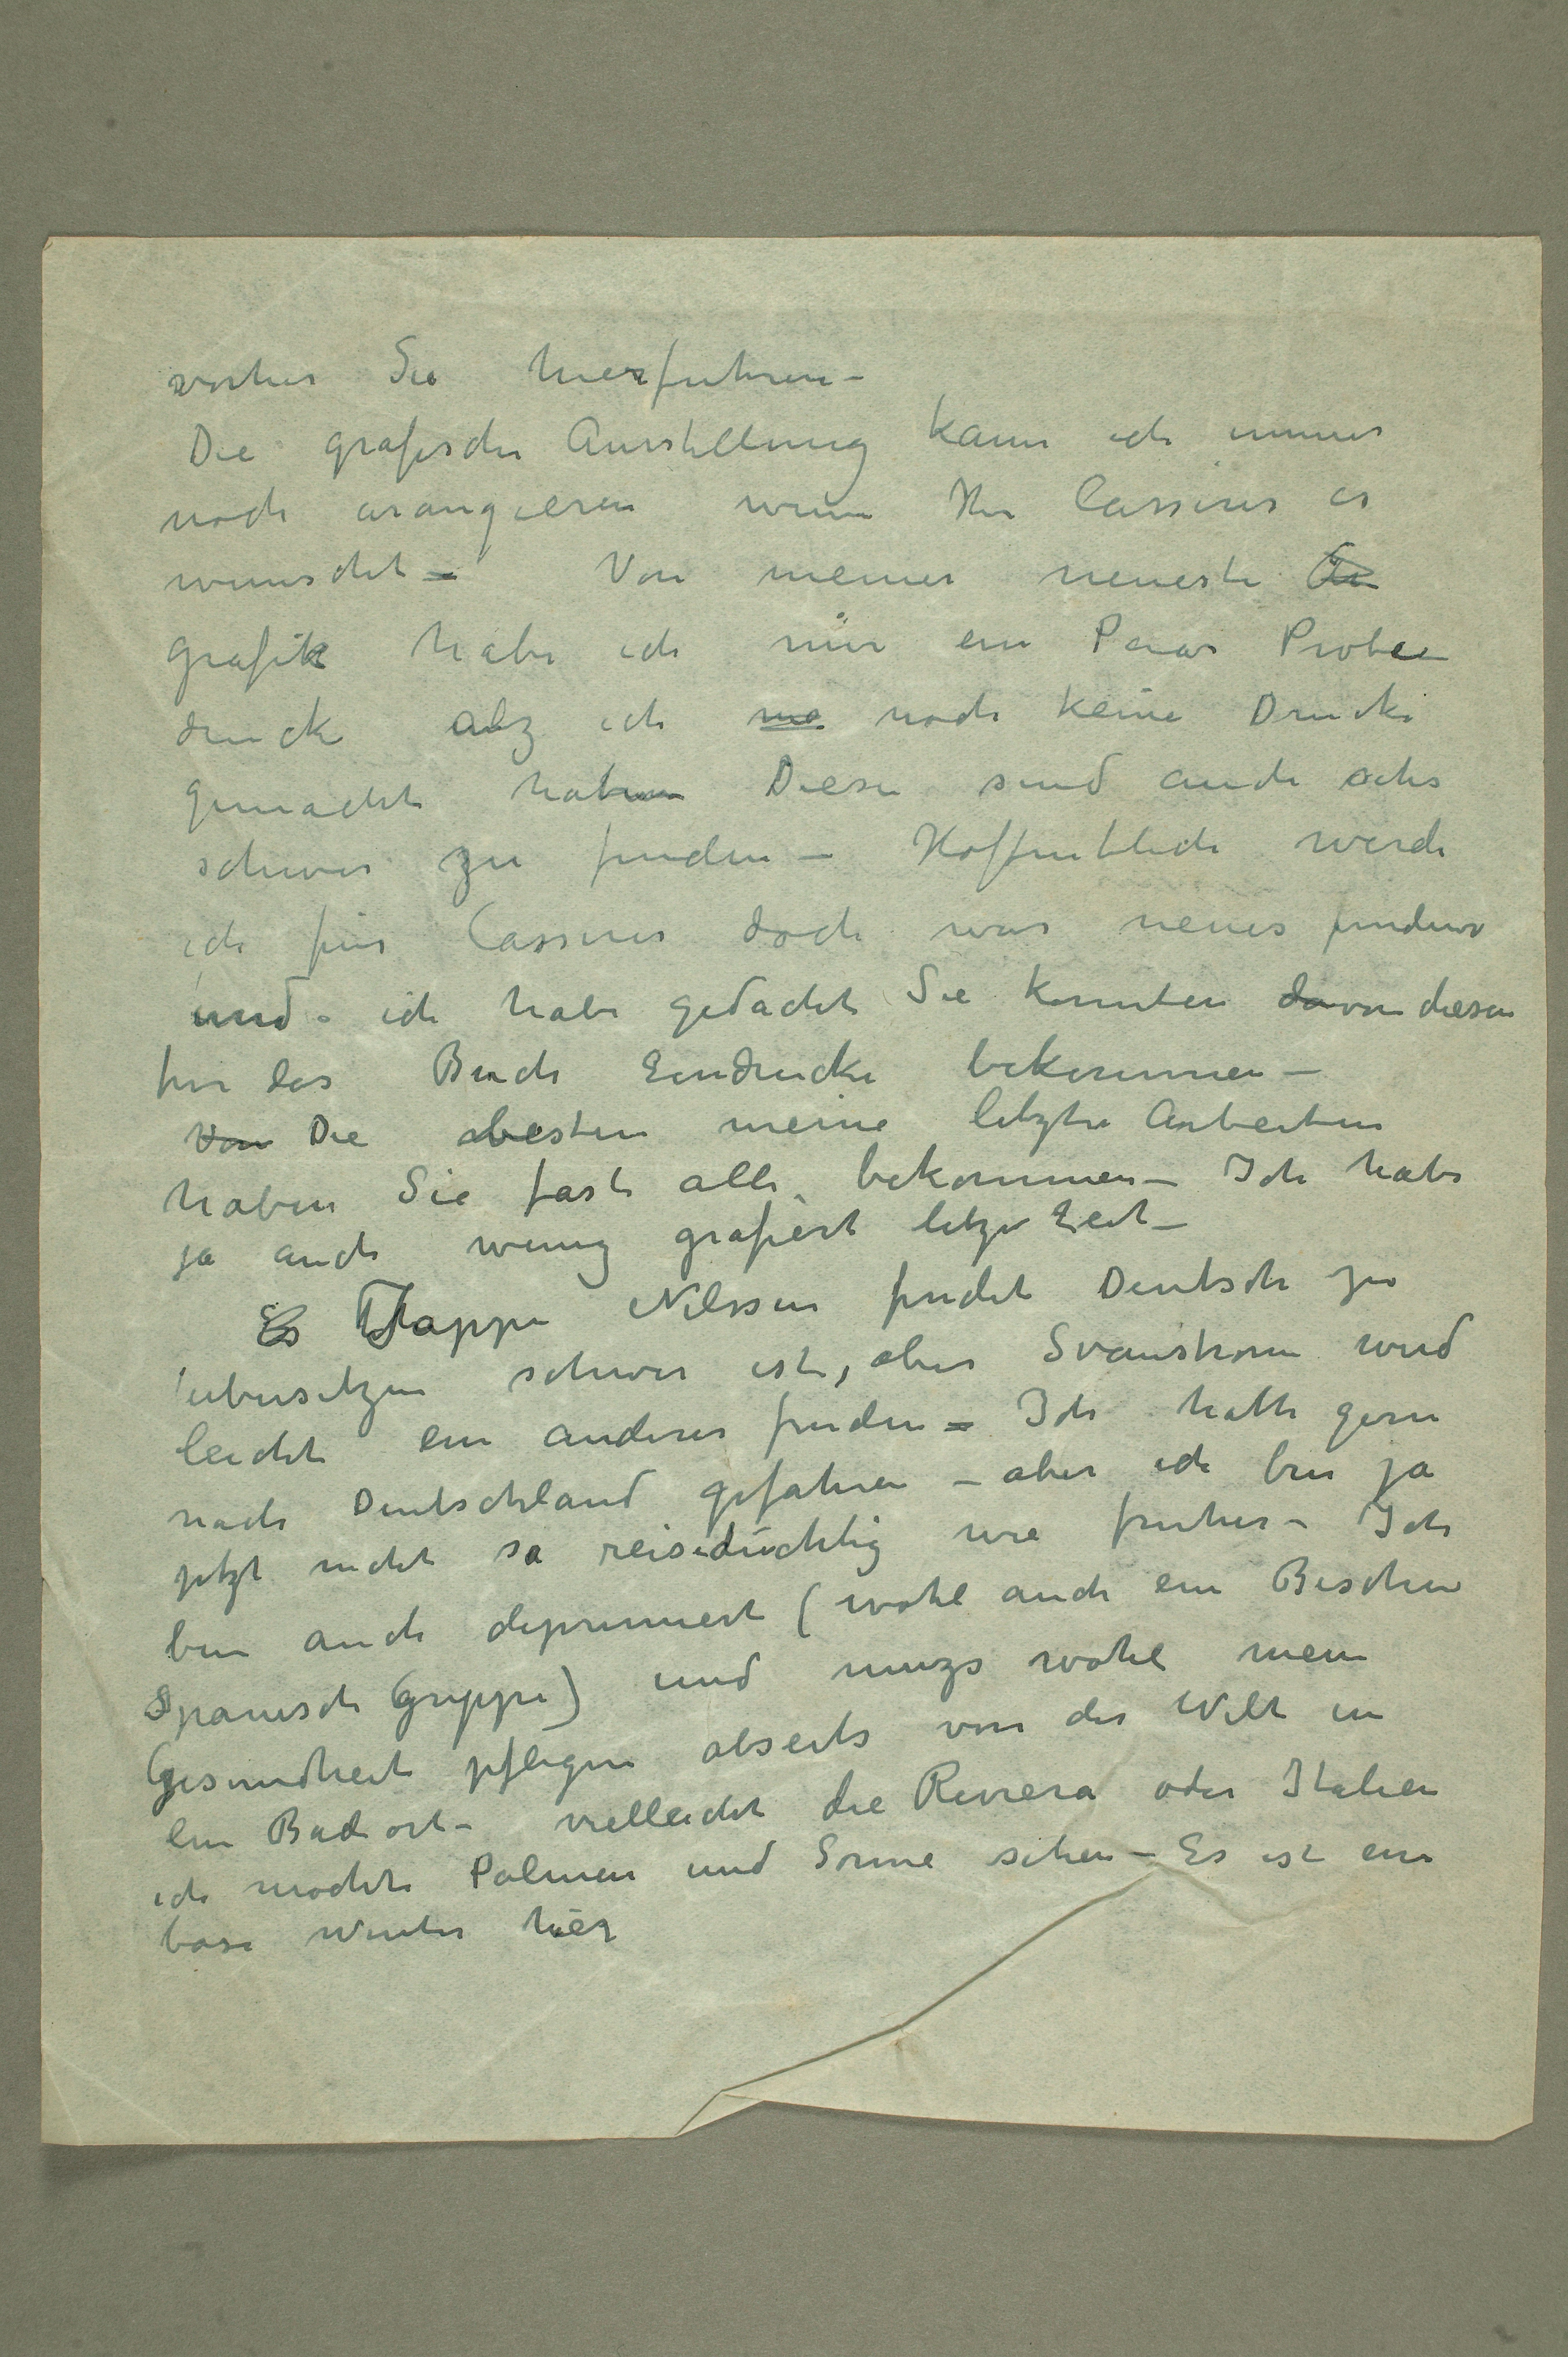 vorher Sie hierfuhren –
Die grafische Ausstellung kann ich immer
noch arangieren wenn Her Cassirer es
wunscht – Von meiner neueste
grafik habe ich nür ein Paar Probee
drucke alz ich noch keine Drucke
gemacht habe Diese sind auch
schwer zu finden – Hoffentlich werde
ich für Cassirer doch was neues finden
und – ich habe gedacht Sie konnten davon diesen
für das Buch Eindrucke bekommen –
Von Die besten meine letzte Arbeiten
haben Sie fast alle bekommen – Ich habe
ja auch wenig grafiert letze Zeit –
Es Jappe Nilssen findet Deutsch zu
übersetzen schwer ist, aber Svanstrom wird
leicht ein anderer finden – Ich hatte gern
nach Deutschland gefahren – aber ich bin ja
jetzt nicht so reisedüchtig wie fruher – Ich
bin auch deprimiert (wohl auch ein Bischen
Spanisch Grippe) und muzs wohl mein
Gesundheit pflegen abseits von der Welt in
ein Badeort – vielleicht die Riviera oder Italien
ich mochte Palmen und Sonne sehen – Es ist ein
böse Winter hier